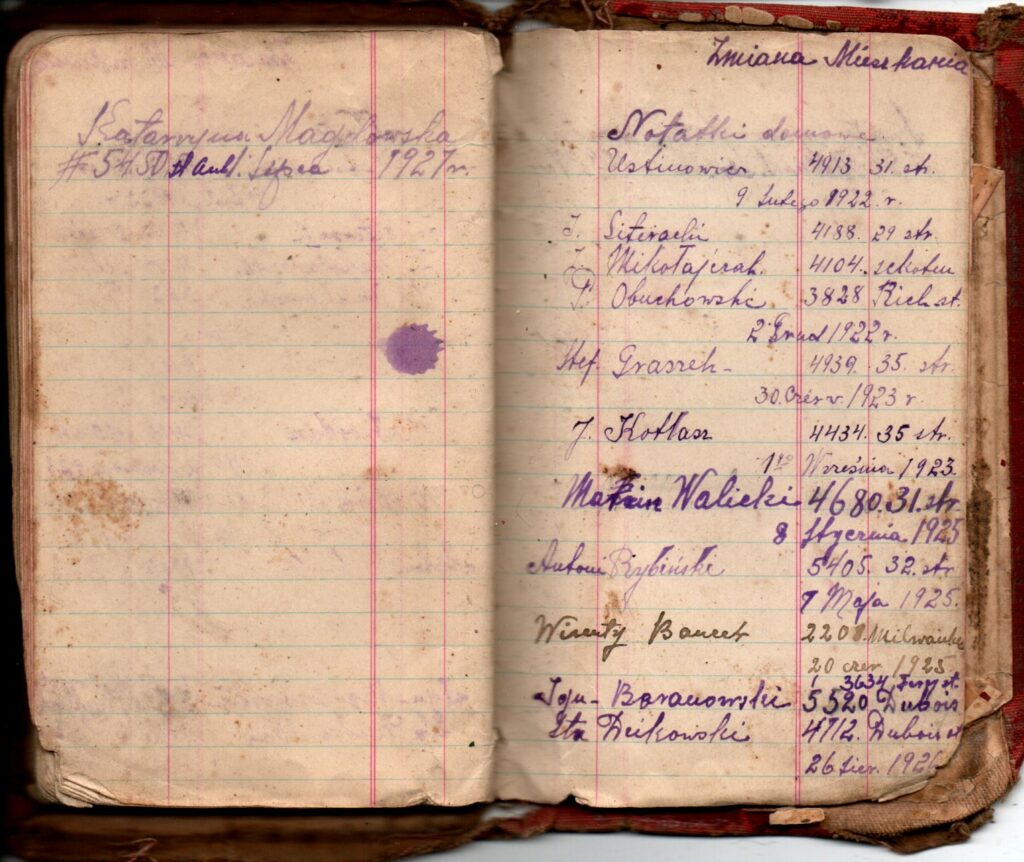 Katarzyna Magdowska
# 5450 St Aubi. Lipca 1927 r.
Zmiana Mieszkania
Notatki domowe
Ustinowicz 4913 31. str.
9 Lutego 1922 r.
J. Siteracki 4188. 29 str.
Mikołajczak. 4104.
P. Obuchowski 3828 Rich st.
2 Grud 1922 r.
Stef. Graszek - 4939. 35. str.
30. Czerw. 1923 r.
J. Kotlarz 4434. 35 str.
1go Września 1923.
Walicki 4680. 31. str.
8 Stycznia 1925
Antoni Rybiński 5405. 32. str
7 Maja 1925.
Wicenty 2208 Milwaukee
20 czer. 1925
3634 Ferry st.
Baranowski 5520 Dubois
Sta Dzikowski 4712. Dubois st
26 Sier. 1926